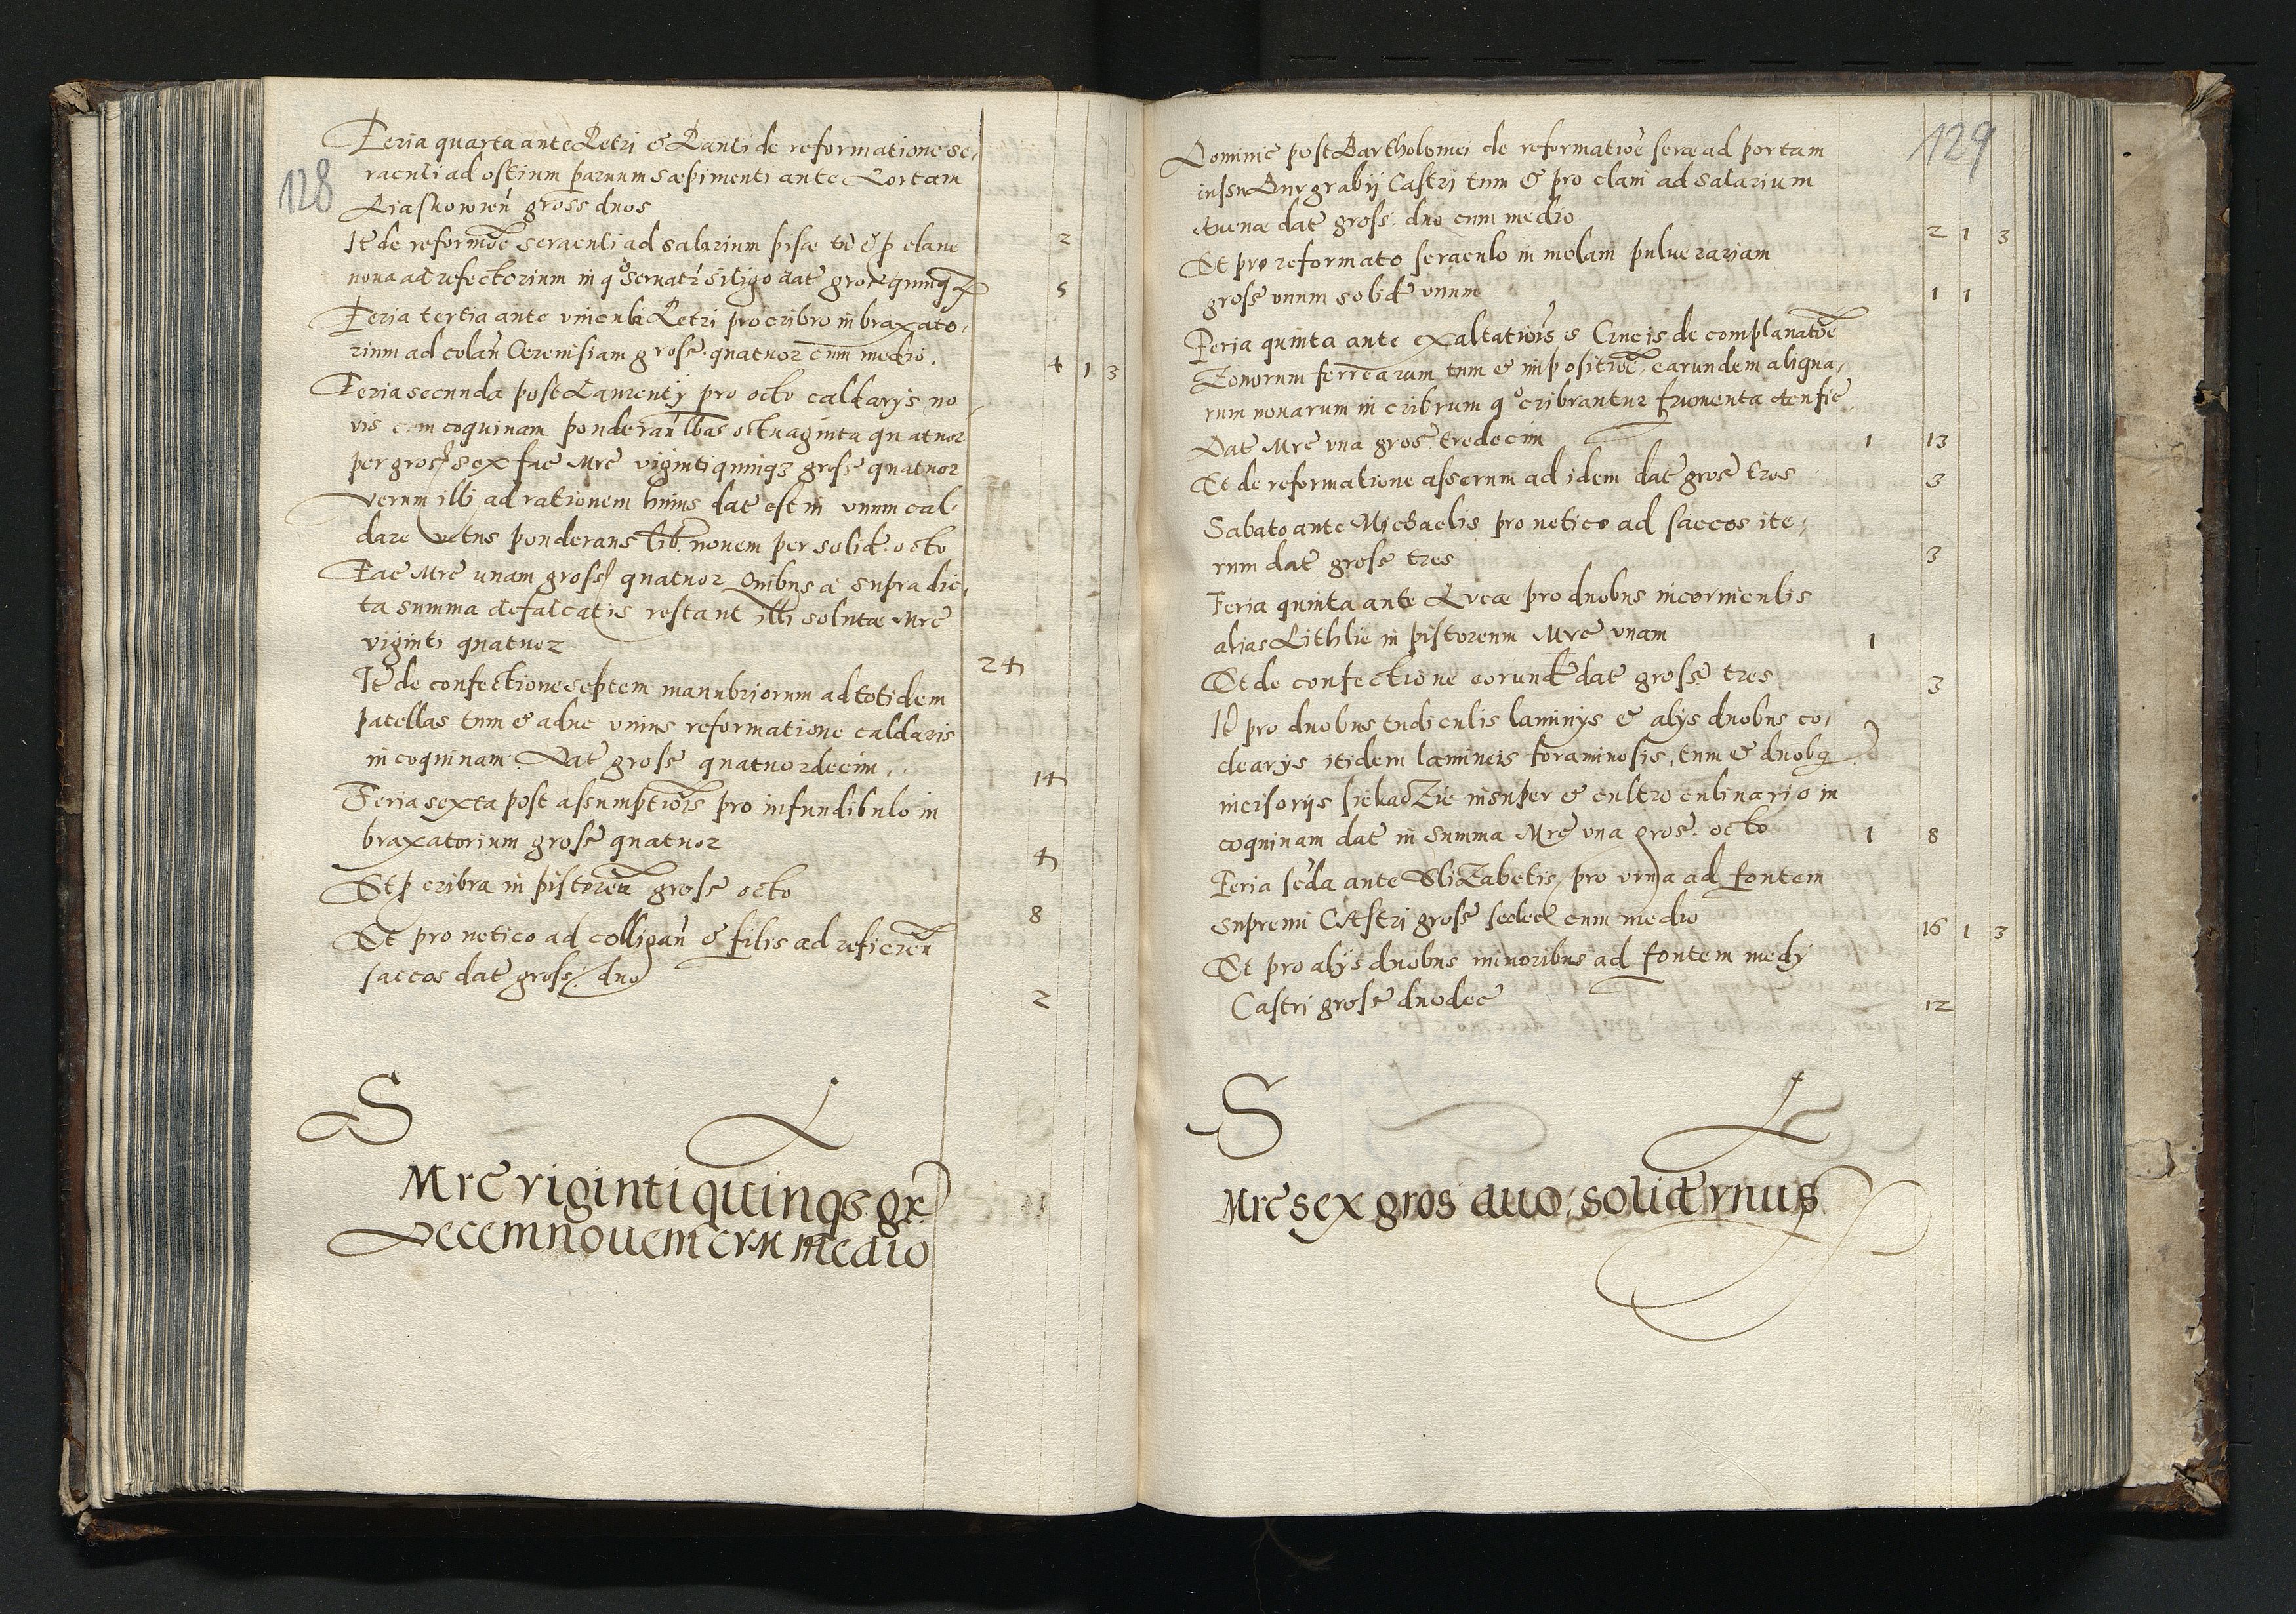 128
Feria quarta ante Petri & Pauli de reformatione se,
raculi ad ostium paruum sæpimenti ante Portam
gross duos
It de reformõe seraculi ad salarium pisæ tũ & p claue 2
noua ad refectorium in qo seruatr siligo dat gross quinq 5
Feria tertia ante vincula Petri pro cribro in braxato,
rium ad colan Cereuisiam gross quatuor cum medio. 4 1 3
Feria secunda post Laurentij pro octo caldarijs no
vis coquinam ponderan lbas octuaginta quatuor
per gross sex fac Mrc viginti quinqz gross quatuor
verum illi ad rationem huius dat est in vnum cal-
dare vetus ponderans lib. nouem per solid. octo
Fac Mrc unam gross quatuor Quibus a supradic,
ta summa defalcatis restant illi solutæ Mrc
viginti quatuor 24
It de confectione septem manubriorum ad totidem
patellas tum & adhuc vnius reformatione caldaris
in coquinam. Dat gross quatuordecim. 14
Feria sexta post assumptiois pro infundibulo in
braxatorium gross quatuor 4
Et p cribra in pistoreu gross octo 8
Et pro netico ad colligan & filis ad reficien
saccos dat gross. duo 2
S
Mrc viginti quinqz gr
Decemnouem cvm medio
129
Dominic post Bartholomei de reformatioe seræ ad portam
iussu Burgrabij Castri tum & pro claui ad salarium
Auenæ dat gross. duo cum medio. 2 1 3
Et pro reformato seraculo in molam puluerariam
gross vnum solid vnum 1 1
Feria quinta ante exaltatiois S Crucis de complanatõe
Zonorum ferrearum tum & impositioe earundem aliqua,
rum nouarum in cribrum qo cribrantur frumenta
Dat Mrc vna gros tredecim 1 13
Et de reformatione asserum ad idem dat gros tres 3
Sabato ante Michaelis pro netico ad saccos ite,
rum dat gross tres 3
Feria quinta ante Lucæ pro duobus incorniculis
alias Lithlie in pistoreum Mrc vnam 1
Et de confectione eorund dat gross tres 3
It pro duobus tudiculis laminijs & alijs duobus co,
clearijs itidem lamineis foraminosis, tum & duobq
incisorijs siekadZie insuper & cultro culinario in
coquinam dat in summa Mrc vna gros. octo 1 8
Feria scda ante EliZabetis pro vrna ad fontem
supremi CAstri gross sedec cum medio 16 1 3
Et pro alijs duobus minoribus ad fontem medij
Castri gross duodec 12
S
Mrc sex gros duo, solid vnus